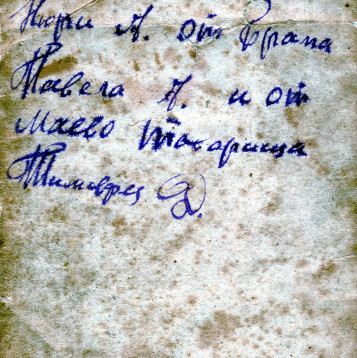 Нюри А. от брата
Павела А. и от
маево товарища
Тимоврец Д.